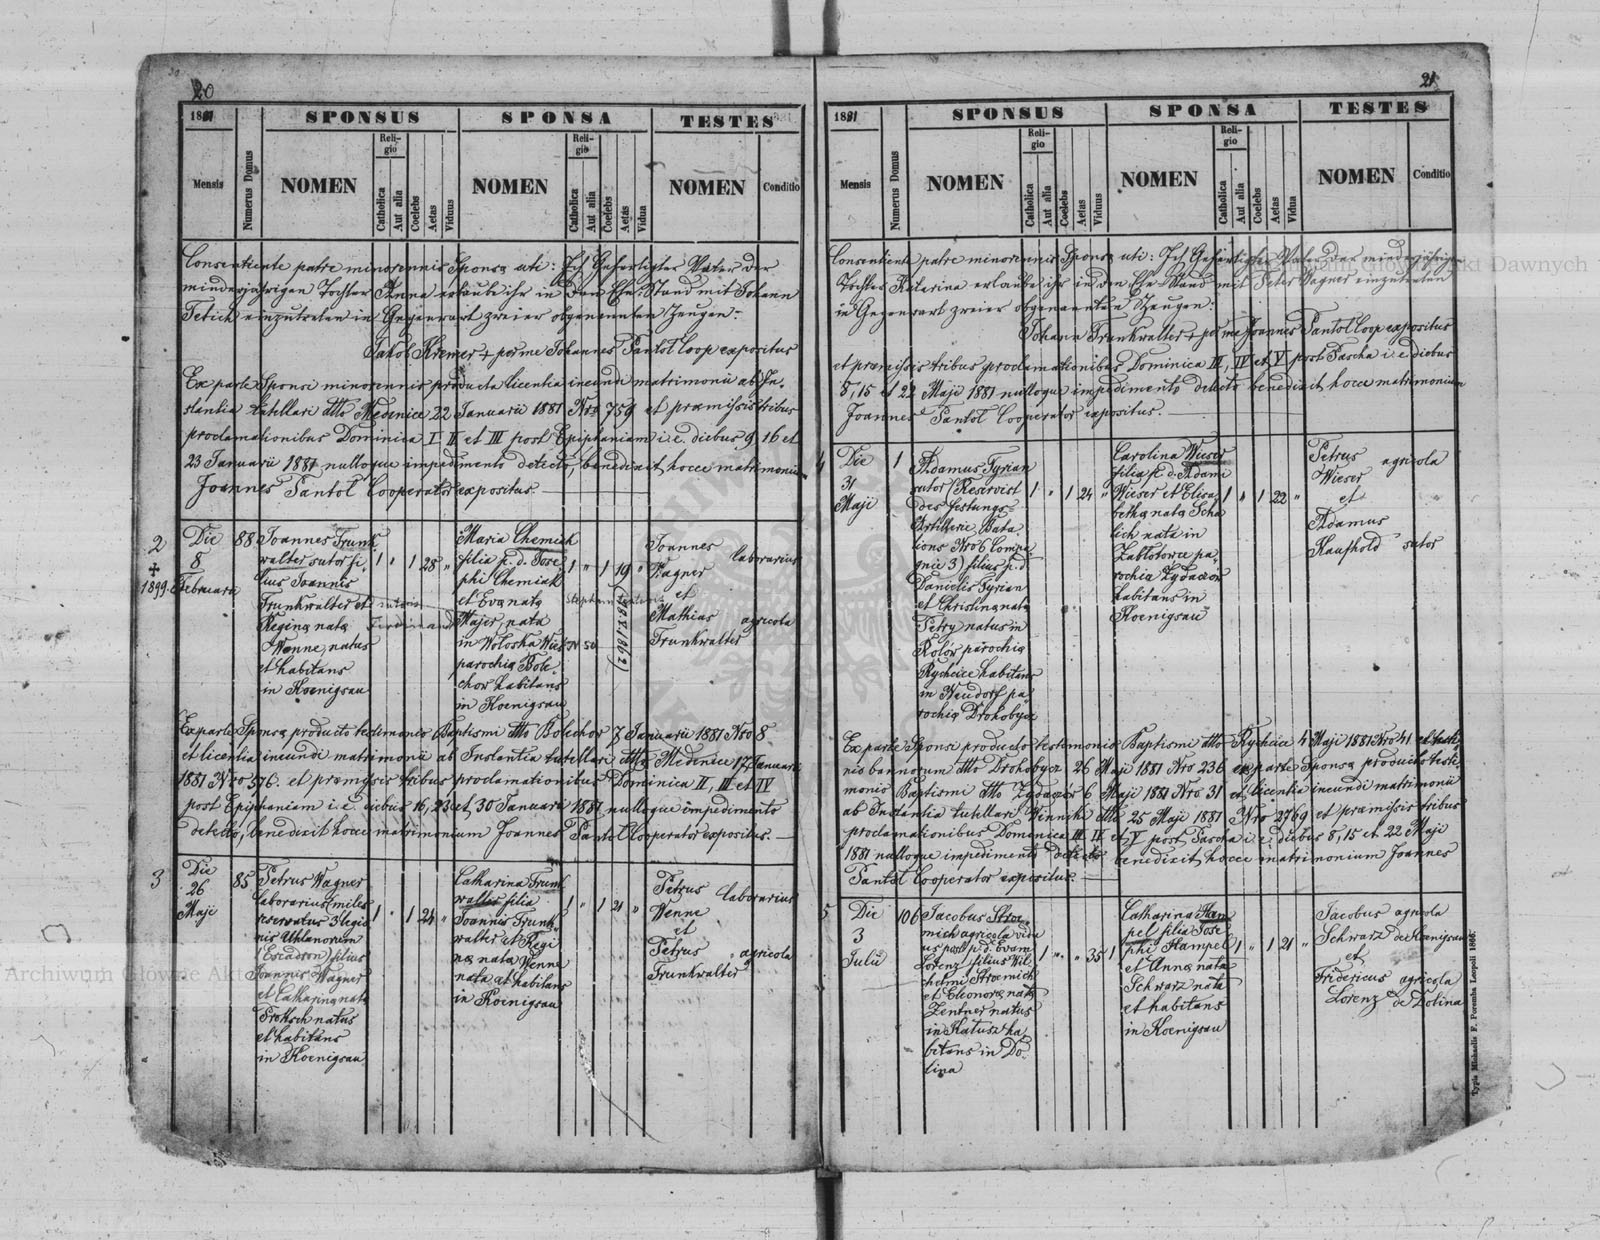 20
1881
SPONSUS
SPONSA
TESTES
Mensis
Numerus Domus
NOMEN
Religio
Catholica
Aut alia
Coelebs
Aetas
Viduus
NOMEN
Religio
Catholica
Aut alia
Coelebs
Aetas
Vidua
NOMEN
Conditio
Consentiente patre minorennis Sponsa uti: Ich Gefertigter Vater der
minderjährigen Tochter Anna erlaube ihr in den Ehe-Stand mit Johann
Tetich einzutreten in Gegenwart zweier obgenannten Zeugen:
Jakob Kremer + per me Johannes Pantol Coop expositus
Ex parte Sponsi minorennis producta licentia ineundi matrimonii ab In-
stantia tutellari dtto Medenice 22 Januarii 1881 Nro 759 et praemissis tribus
proclamationibus Dominica I II et III post Epiphaniam i. e. diebus 9, 16 et
23 Januarii 1881 nulloque impedimento detecto, benedixit hocce matrimonium
Joannes Pantol Cooperator expositus.
2
+
1899.
Die
8
Februarii
88
Joannes Trunk
walter sutor fi-
lius Joannis
Trunkwalter et
Regina nata
Wenne, natus
et habitans
in Koenigsau
1 " 1 28 "
Maria Chemiak
filia p. d. Jose
phi Chemiak
et Eva nata
Majer, nata
in Woloska Wies
parochia Bole
chow habitans
in Koenigsau
1 " 1 19 "
Joannes
Wagner
et
Mathias
Trunkwalter
laborarius
agricola
Ex parte Sponsa producto testimonio Baptismi dtto Bolechow 7 Januarii 1881 Nro 8
et licentia ineundi matrimonii ab Instantia tutellari dtto Medenice 17 Januarii
1881 Nro 576. et praemissis tribus proclamationibus Dominica II, III et IV
post Epiphaniam i. e. diebus 16, 23 et 30 Januarii 1881 nulloque impedimento
detecto, benedixit hocce matrimonium Joannes Pantol Cooperator expositus.
3
Die
26
Maji
85
Petrus Wagner
laborarius miles
reservatus 3 legio
nis Uhlanorum
(Escadron) filius
Joannis Wagner
et Catharina nata
natus
et habitans
in Koenigsau
1 " 1 24 "
Catharina Trunk
walter filia
Joannis Trunk
walter et Regi
na nata Wenne
nata et habitans
in Koinigsau
1 " 1 21 "
Petrus
Wenne
et
Petrus
Trunkwalter
laborarius
agricola
21
1881
SPONSUS
SPONSA
TESTES
Mensis
Numerus Domus
NOMEN
Religio
Catholica
Aut alia
Coelebs
Aetas
Viduus
NOMEN
Religio
Catholica
Aut alia
Coelebs
Aetas
Vidua
NOMEN
Conditio
Consentiente patre minorennis Sponsa uti: Ich Gefertigter Vater der minderjährigen
Tochter Katarina erlaube ihr in den Ehe-Stand mit Peter Wagner einzutreten
in Gegenwart zweier obgenannten Zeugen:
Johann Trunkwalter + per me Joannes Pantol Coop expositus
et praemissis tribus proclamationibus Dominica III, IV et V post Pascha i. e. diebus
8, 15 et 22 Maji 1881 nulloque impedimento detecto benedixit hocce matrimonium
Joannes Pantol Cooperator expositus.
4
Die
31
Maji
1
Adamus Tyrian
sutor (Reservist
des Festungs-
Artillerie Bata
lions Nro 6 Compa
gnie 3) filius p. d.
Danielis Tyrian
et Christina nata
Petry natus in
Kolor parochia
Rychcice habitans
in Neudorf pa
rochia Drohobycz
1 " 1 24 "
Carolina Wieser
filia p. d. Adami
Wieser et Elisa
betha nata Scha
lich nata in
Zablotowce pa
rochia Zydaczow
habitans in
Koenigsau
1 " 1 22 "
Petrus
Wieser
et
Adamus
Kaufhold
agricola
sutor
Ex parte Sponsi producto testimonio Baptismi dtto Rychcice 4 Maji 1881 Nro 41 et testi-
nio bannorum dtto Drohobycz 26 Maji 1881 Nro 236 ex parte Sponsa producto testi-
monio Baptismi dtto Zydaczow 6 Maji 1881 Nro 31 et licentia ineundi matrimonii
ab Instantia tutellari Winniki dtto 25 Maji 1881 Nro 2769 et praemissis tribus
proclamationibus Dominica III IV et V post Pascha i. e. diebus 8, 15 et 22 Maji
1881 nulloque impedimento detecto benedixit hocce matrimonium Joannes
Pantol Cooperator expositus.
5
Die
3
Julii
106
Jacobus Stroe-
mich agricola vidu
us post p. d. Evam
Lorenz filius Wil
helmi Stroemich
et Eleonora nata
Zentner natus
in Katusz ha
bitans in Do-
lina
1 " " 35 1
Catharina Ham
pel filia Jose
phi Hampel
et Anna nata
Schwarz nata
et habitans
in Koenigsau
1 " 1 21 "
Jacobus
Schwarz
et
Fridericus
Lorenz
agricola
de Koenigsau
agricola
de Dolina
Typis Michaelis F. Poremba Leopoli 1866.
Archiwum Główne Akt Dawnych
Archiwum Główne Akt Dawnych